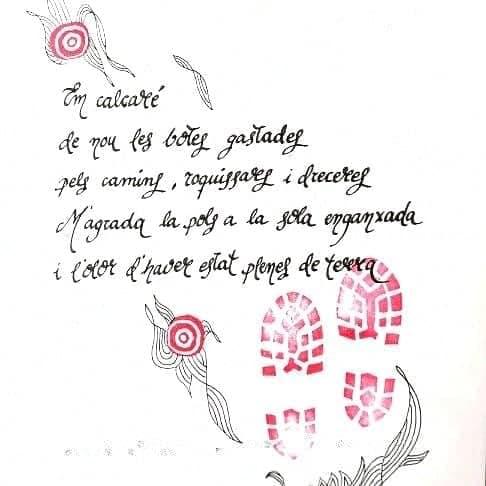 Em calçaré
de nou les botes gastades
pels camins, roquissars i dreceres
M'agrada la pols a la sola enganxada
i l'olor d'haver estat plenes de terra